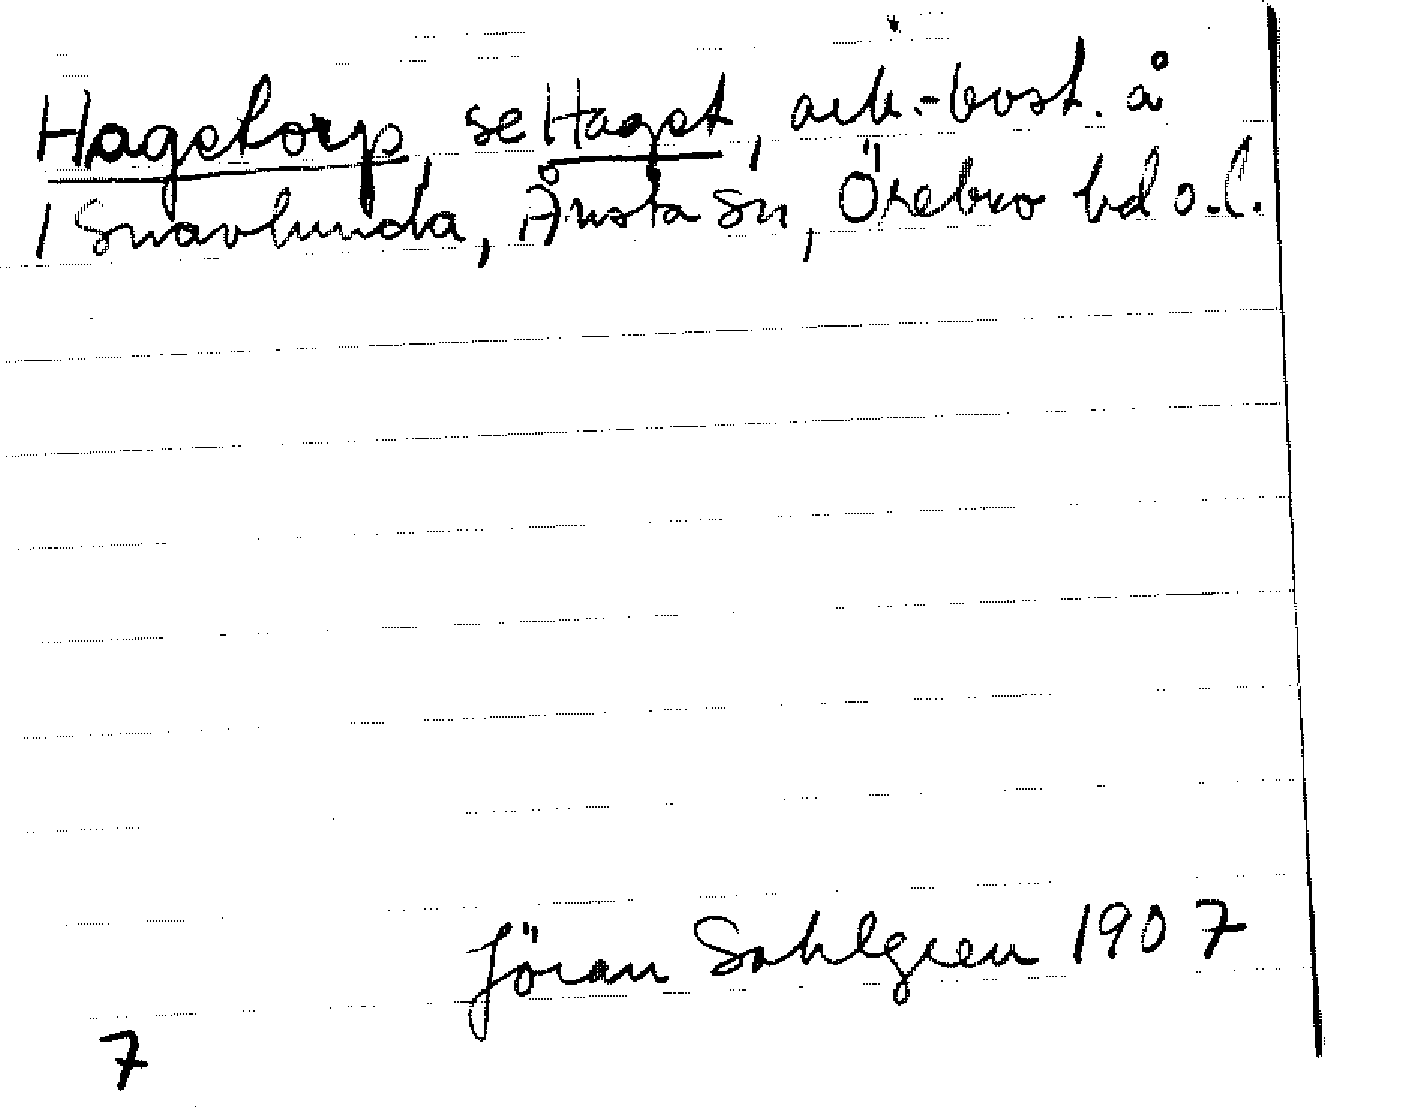 Hagetorp, se Haget, arb.-bost. å
1 Snavlunda, Ånsta sn, Örebro hd o. l.
Jöran Sahlgren 1907
7